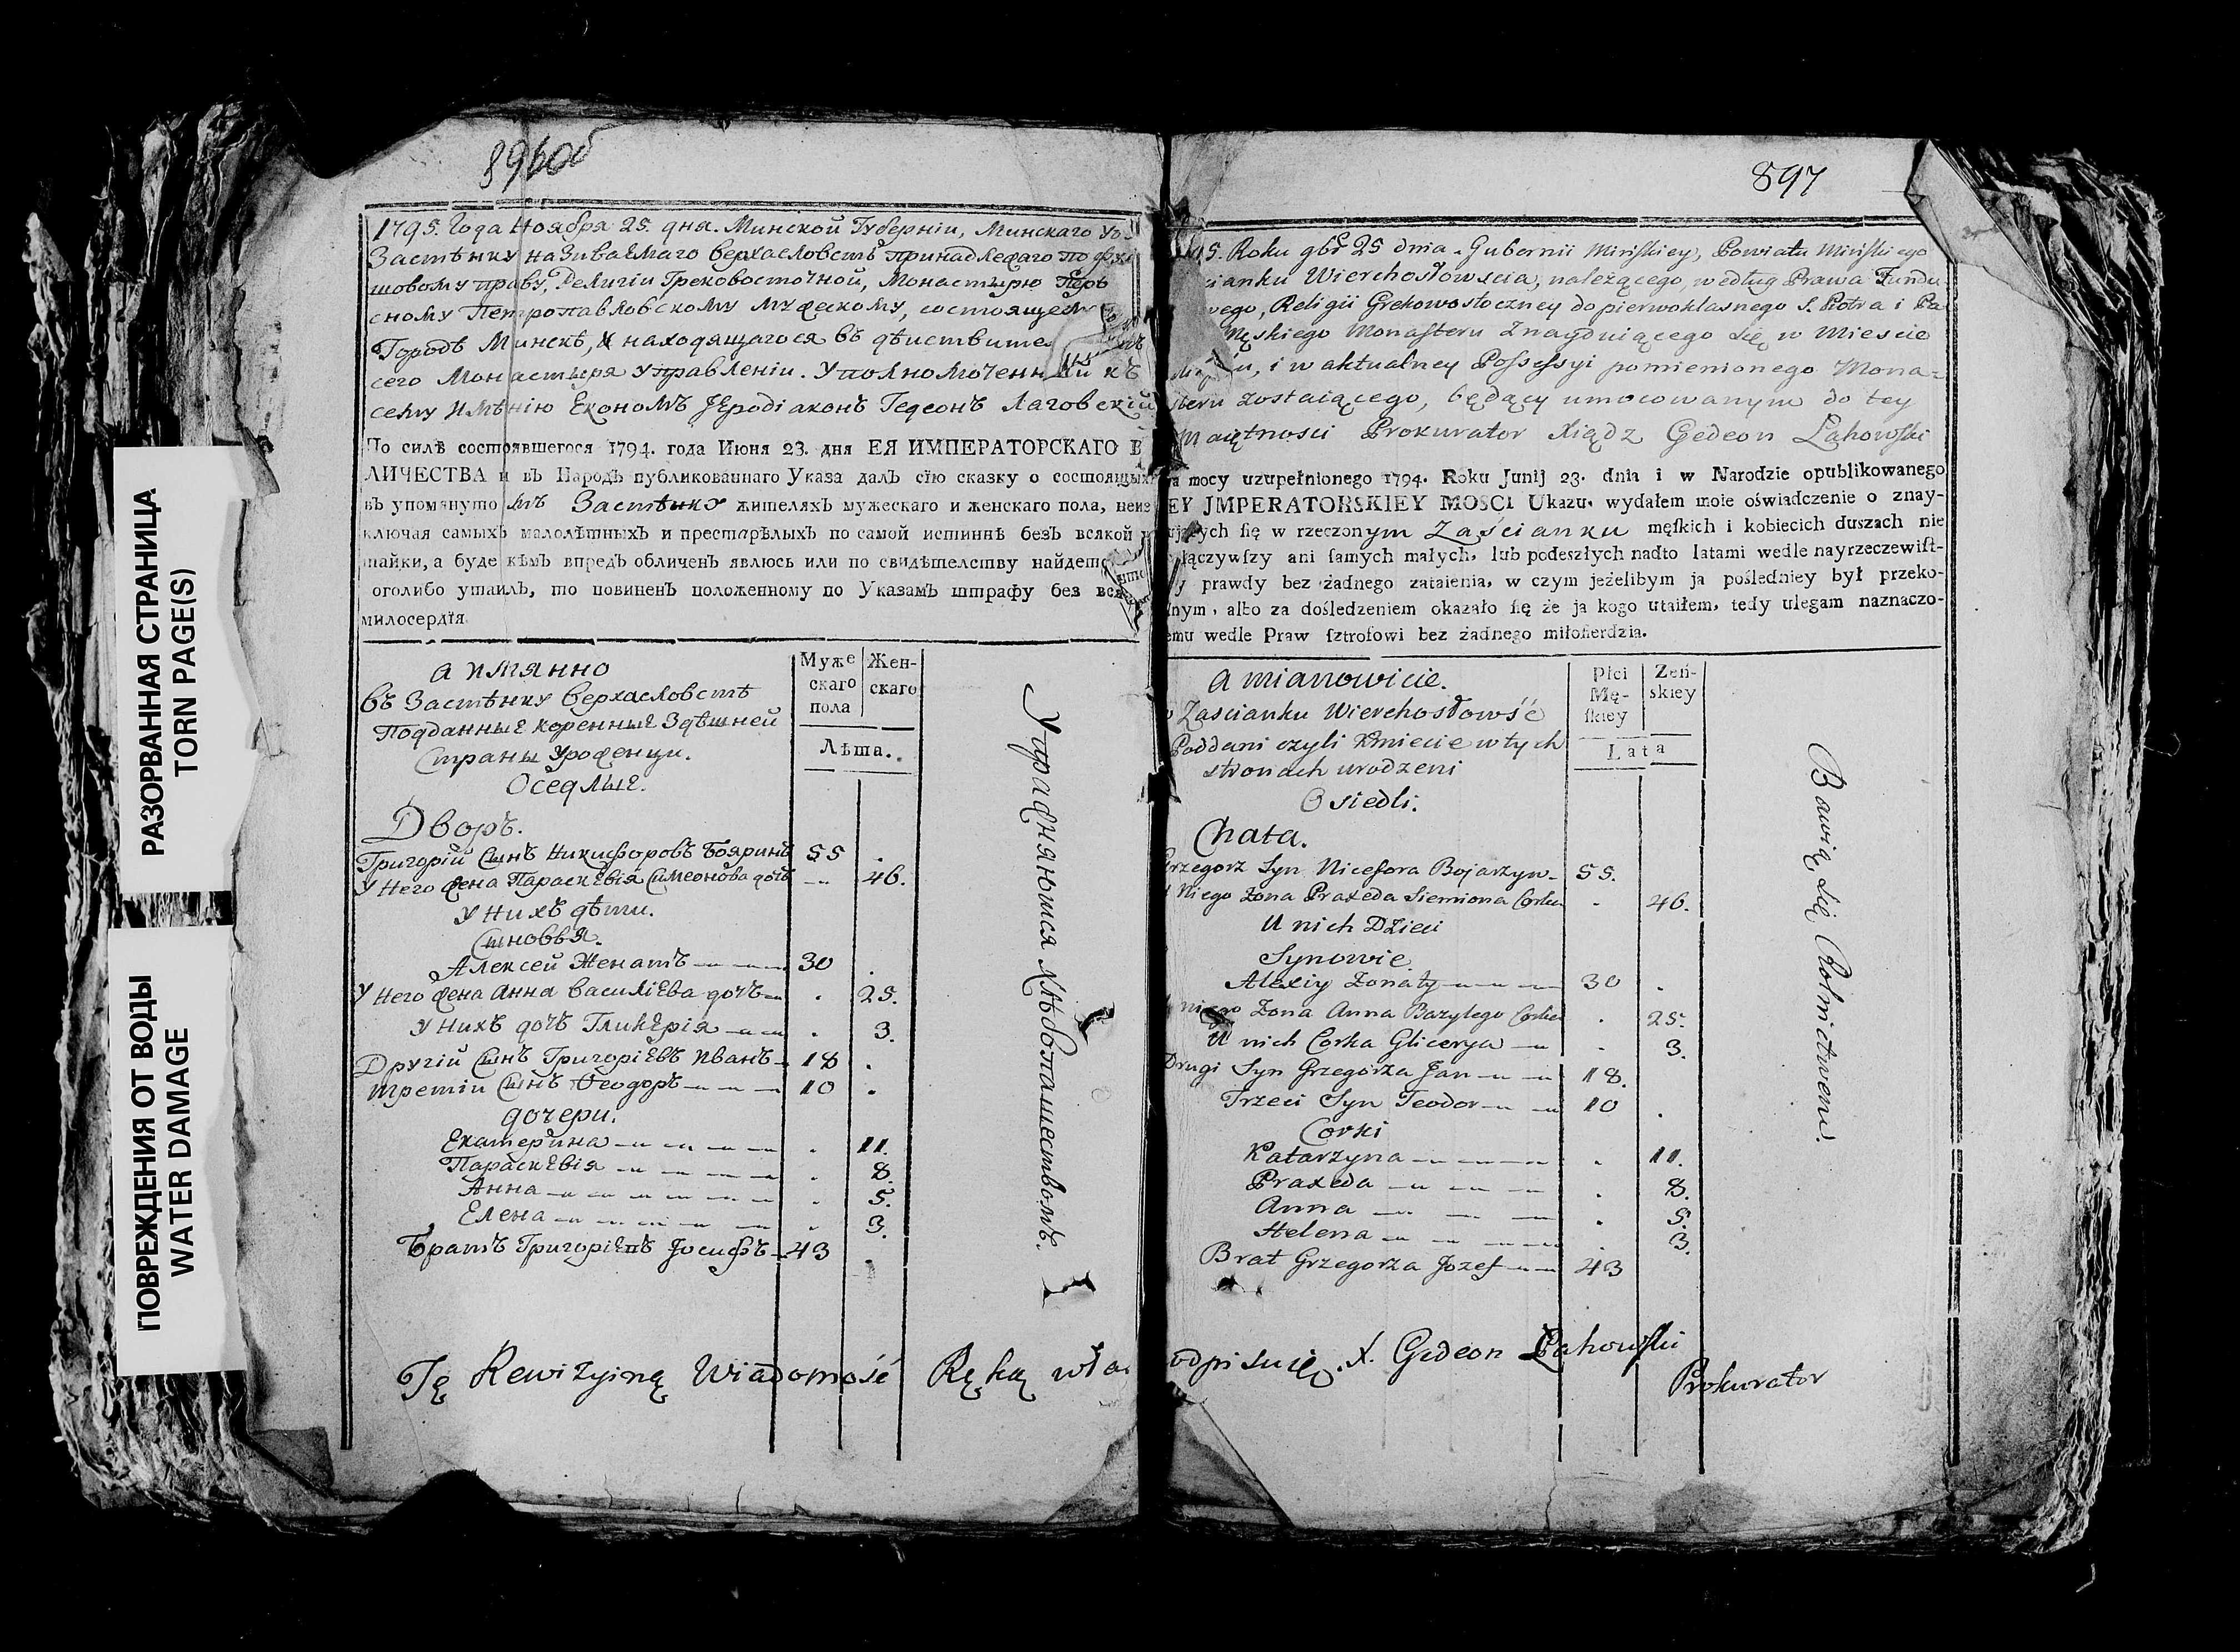 РАЗОРВАННАЯ СТРАНИЦА
TORN PAGE(S)
ПОВРЕЖДЕНИЯ ОТ ВОДЫ
WATER DAMAGE
896об
1795. Года Ноября 25. дня. Минской Губерніи, Минскаго
Застѣнку называемаго Верхасловстѣ принадлежаго по
шовому праву, Религіи Грековосточной, Монастырю
сному Петропавловскому мужескому, состоящему
Городѣ Минскѣ, и находящагося въ дѣиствите
сего Монастыря управленіи. Уполномоченный къ
сему имѣнію Економъ Іеродіаконъ Гедеонъ Лаговскій
По силѣ состоявшегося 1794. года Июня 23. дня ЕЯ ИМПЕРАТОРСКАГО В
ЛИЧЕСТВА и въ Народѣ публикованнаго Указа далъ сїю сказку о состоящихъ
въ упомянутомъ Застѣнку жителяхъ мужескаго и женскаго пола, неиз
ключая самыхъ малолѣтныхъ и престарѣлыхъ по самой истиннѣ безъ всякой
тайки, а буде кѣмъ впредъ обличенъ явлюсь или по свидѣтелству найдетс
оголибо утаилъ, то повиненъ положенному по Указамъ штрафу без вся
милосердїя
а имянно
въ Застѣнку Верхасловстѣ
Подданные коренные здѣшней
Страны уроженци.
Оседлые.
Муже
скаго
пола
Жен-
скаго
Лѣта.
Дворъ.
Григорій Сынъ Никифоровъ Бояринъ 55 .
У Него жена Параскевія Симеонова дочь — 46.
У Нихъ дѣти.
Сыновья.
Алексей Женатъ — — — 30 .
У Него жена Анна Василіева дочь — . 25.
У Нихъ дочь Гликерія — — . 3.
Другій Сынъ Григоріевъ Иванъ — 18 .
Третіи Сынъ Ѳеодоръ — — — 10 .
дочери.
Екатерина — — — — . 11.
Параскевія — — — — . 8.
Анна — — — — — — . 5.
Елена — — — — — . 3.
Братъ Григоріевъ Іосифъ — 43 .
Упражняются хлѣбопашествомъ.
Tę Rewizyiną Wiadomość Ręką wła
897
95. Roku 9br 25 dnia. Gubernii Minſkiey, Powiatu Minſkiego
cianku Wierchosłowscia, należącego, według Prawa Fundu-
wego, Religii Grekowostoczney do pierwoklasnego S. Piotra i Pa
Męskiego Monaſteru Znayduiącego się w Miescie
u, i w aktualney Poſseſsyi pomienionego Mona-
steru zostaiącego, będący umocowanym do tey
Maiętnosci Prokurator Xiądz Gedeon Łahowſki
a mocy uzupełnionego 1794. Roku Junij 23. dnia i w Narodzie opublikowanego
EY JMPERATORSKIEY MOSCI Ukazu, wydałem moie oświadczenie o znay-
ujących ſię w rzeczonym Zaścianku męſkich i kobiecich duszach nie
łączywſzy ani ſamych małych, lub podeszłych nadto latami wedle nayrzeczewiſt-
y prawdy bez żadnego zataienia, w czym jeżelibym ja pośledniey był przeko-
nym, albo za dośledzeniem okazało ſię że ja kogo utaiłem, tedy ulegam naznaczo-
emu wedle Praw ſztrofowi bez żadnego miłoſierdzia.
A mianowicie.
Zascianku Wierchosłowść
Poddani czyli Kmiecie w tych
stronach urodzeni
Osiedli.
Płci
Mę-
ſkiey
Zeń-
skiey
Lata
Chata.
Grzegorz Syn Nicefora Bojarzyn — 55.
U Niego Żona Praxeda Siemiona Corka . 46.
U nich Dzieci
Synowie
Alexiy Żonaty — — — 30 .
U niego Żona Anna Bazylego Corka . 25.
U nich Corka Glicerya — . 3.
Drugi Syn Grzegorza Jan — — 18.
Trzeci Syn Teodor — — 10 .
Corki
Katarzyna — — — . 11.
Praxeda — — — . 8.
Anna — — — . 5.
Helena — — — . 3.
Brat Grzegorza Jozef — — 43
Bawią się Rolnictwem.
odpisuię. X. Gedeon Łahowſki
Prokurator